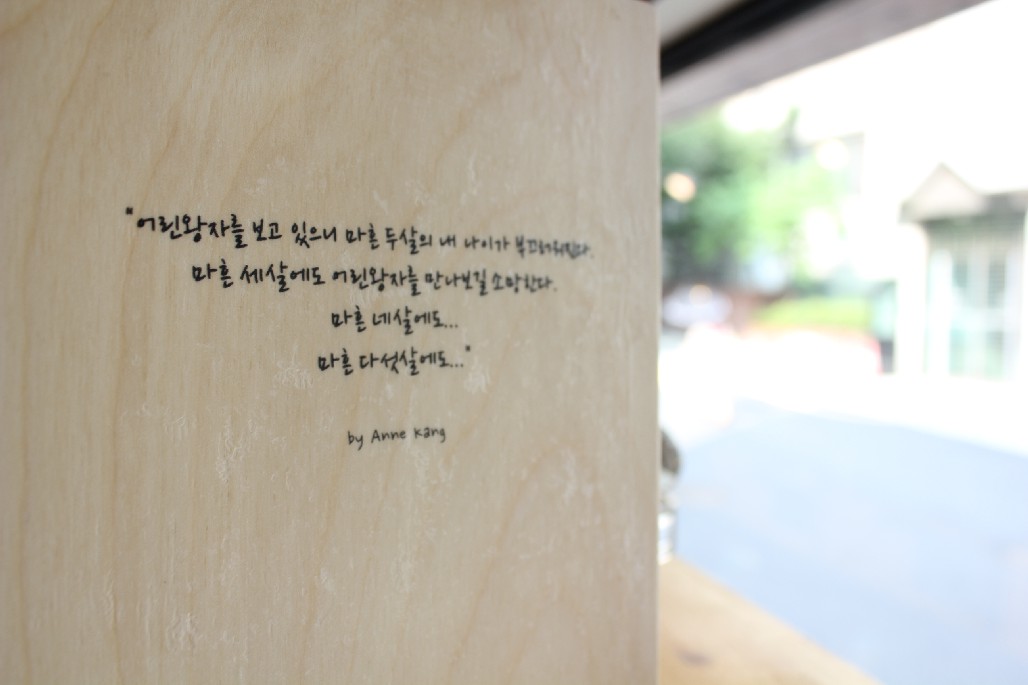 "어린왕자를 보고 있으니 마흔 두살의 내 나이가 부끄러워진다.
마흔 세살에도 어린왕자를 만나보길 소망한다.
마흔 네살에도...
마흔 다섯살에도..."
by Anne Kang